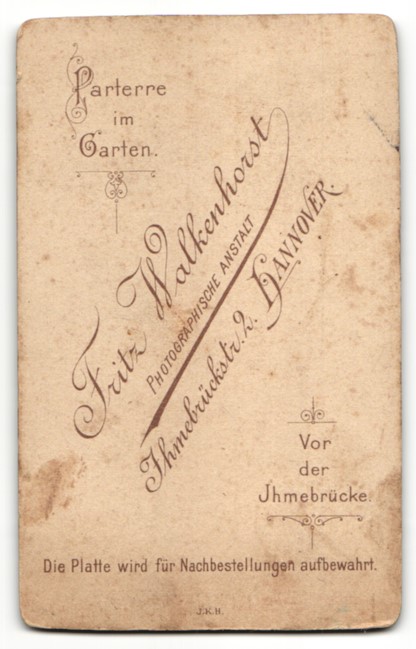 Parterre
im
Garten.
Fritz Walkenhorst
PHOTOGRAPHISCHE ANSTALT
Jhmebrückstr. 2. HANNOVER.
Vor
der
Jhmebrücke.
Die Platte wird für Nachbestellungen aufbewahrt.
J.K.H.